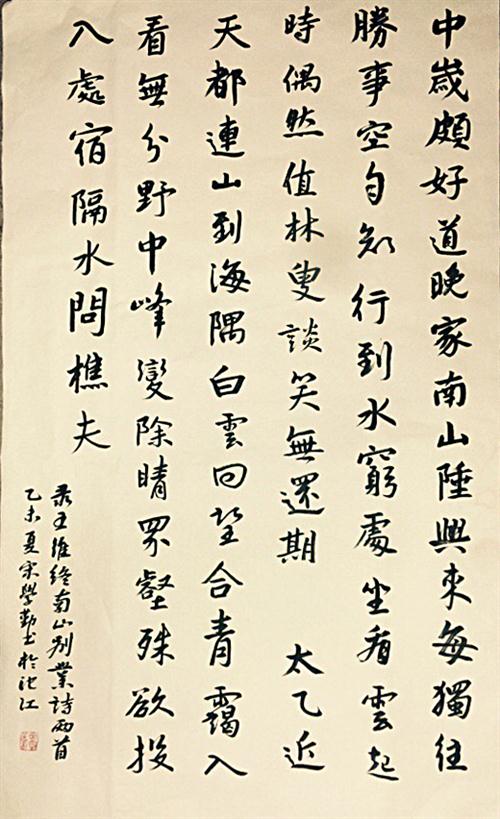 中歲頗好道晚家南山陲興來每獨往
勝事空自知行到水窮處坐看雲起
時偶然值林叟談笑無還期 太乙近
天都連山到海隅白雲回望合青靄入
看無分野中峰變除晴眾壑殊欲投
入處宿隔水問樵夫
录王維終南山别業詩兩首
乙未夏宋學勤书於沱江